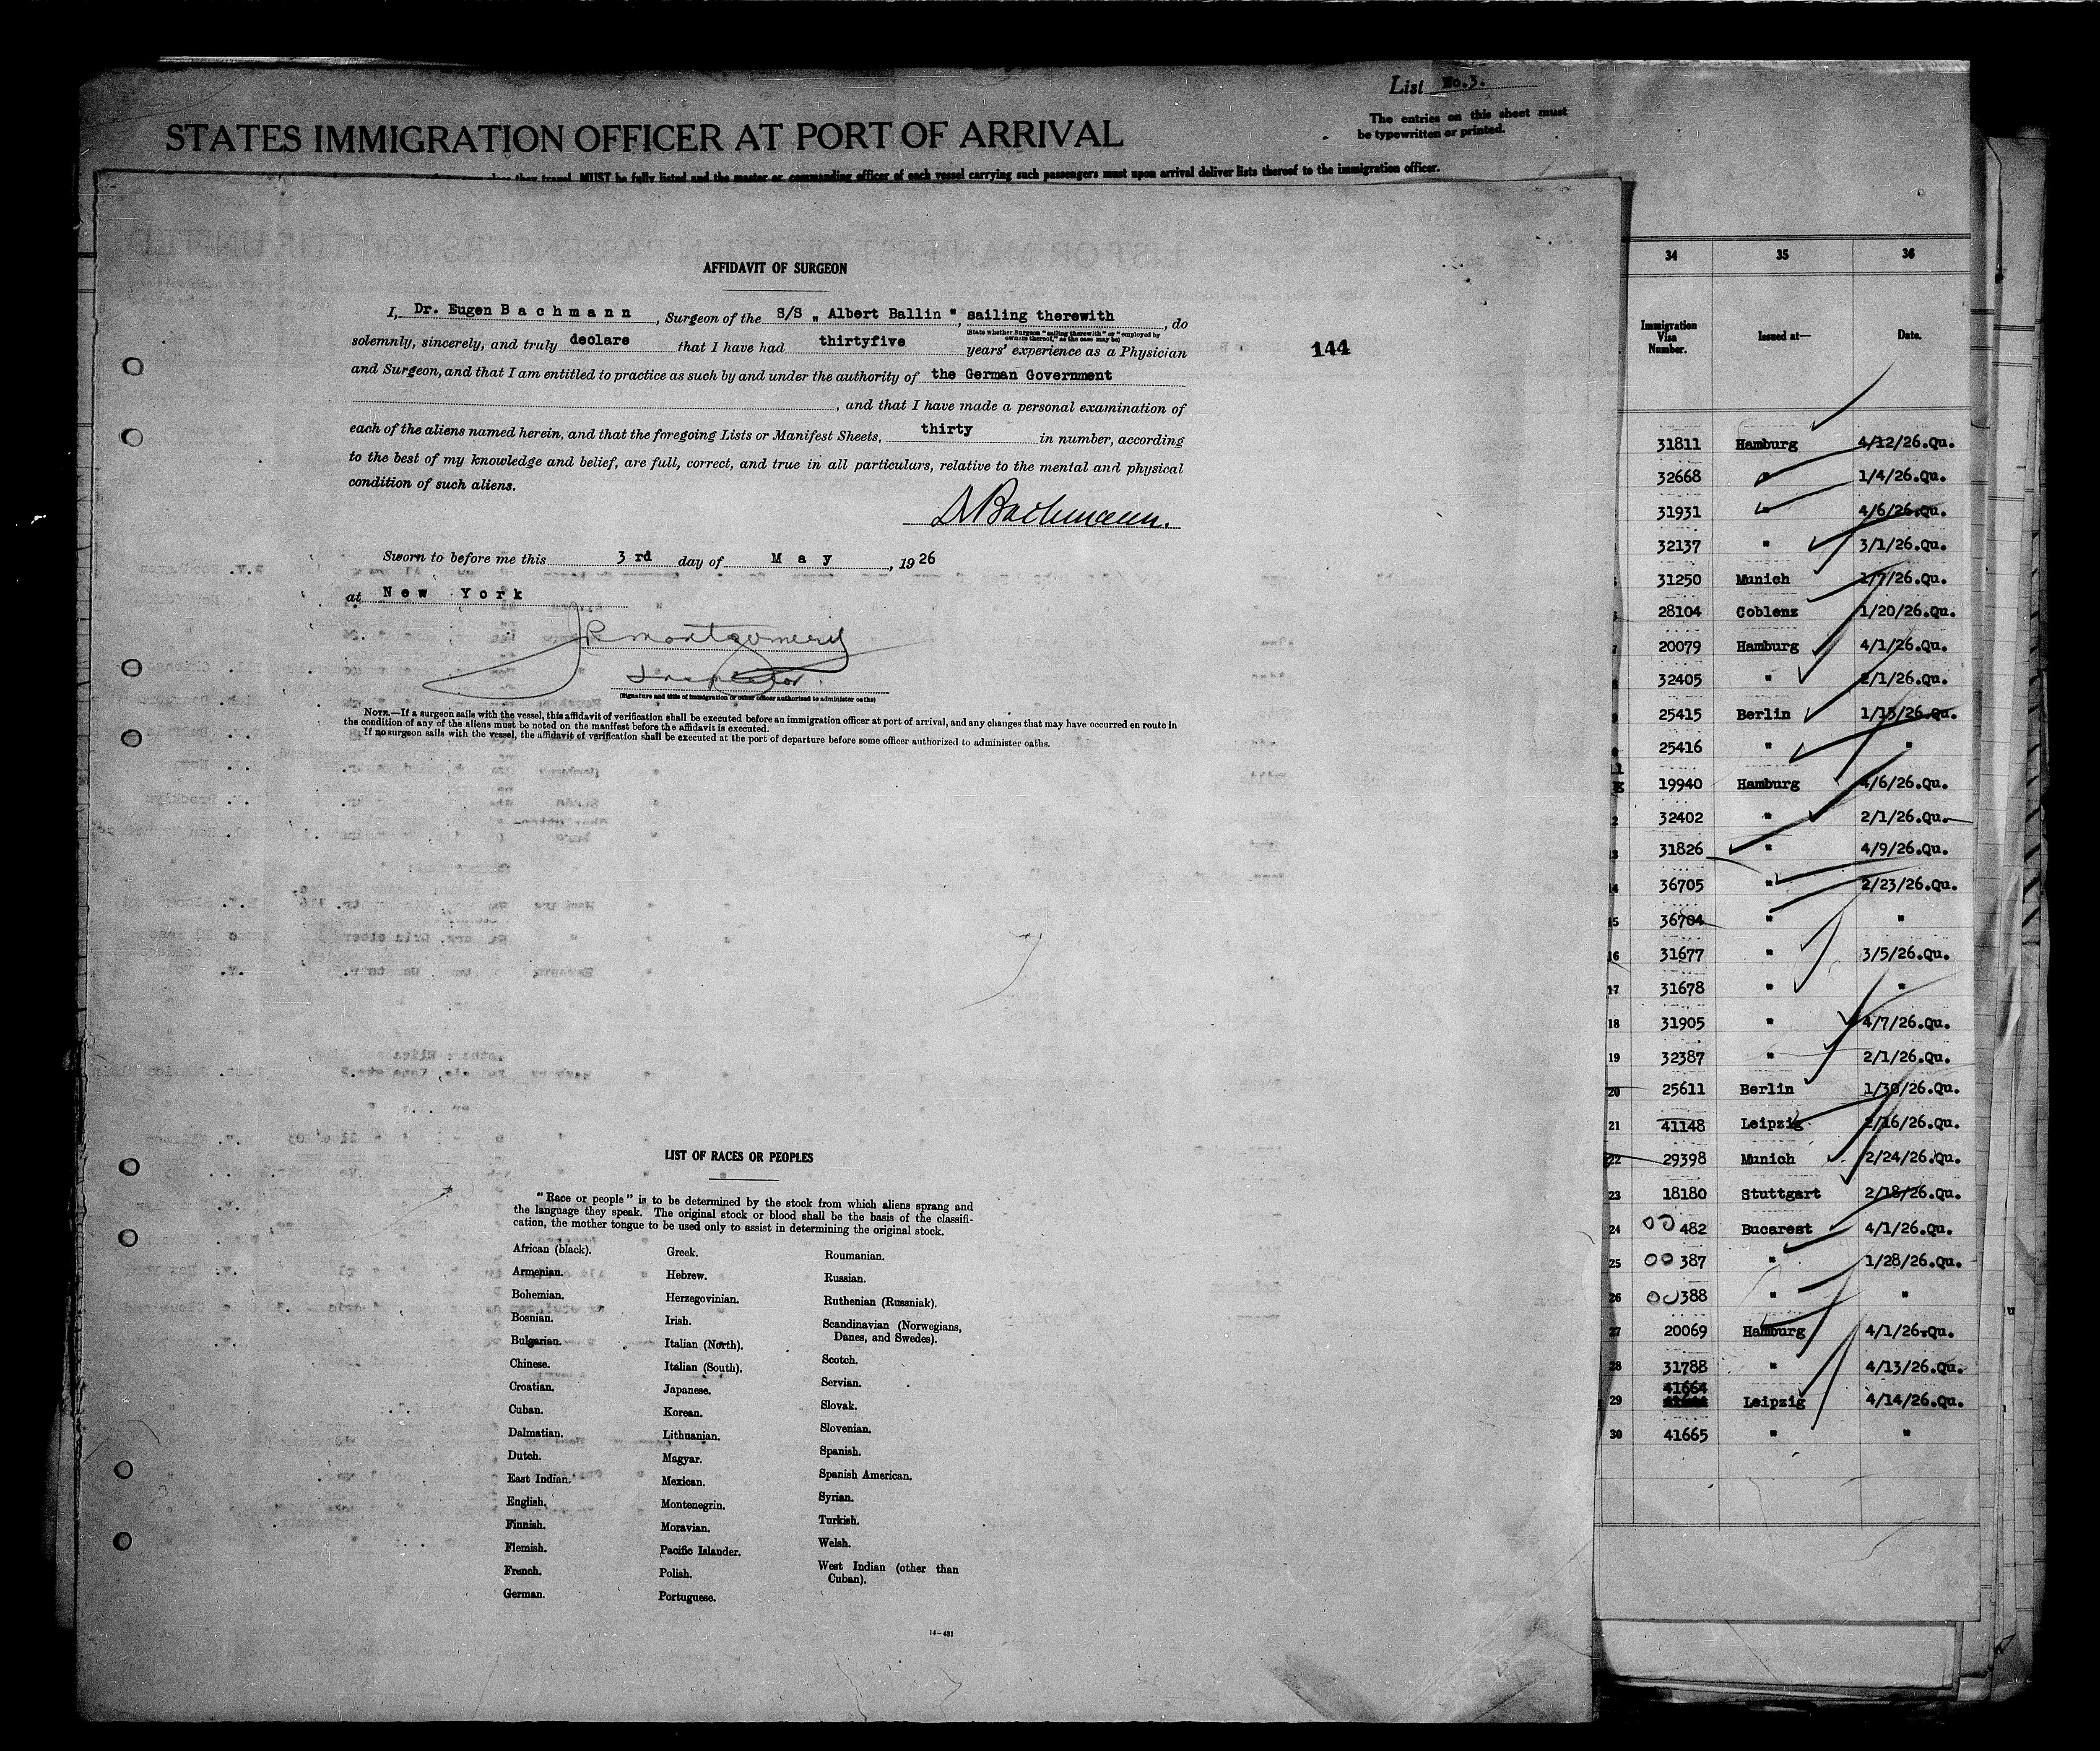 List No.3.
The entries on this sheet must
be typewritten or printed.
STATES IMMIGRATION OFFICER AT PORT OF ARRIVAL
MUST be fully listed and the master or commanding officer of each vessel carrying such passengers must upon arrival deliver lists thereof to the immigration officer.
AFFIDAVIT OF SURGEON
I, Dr. Eugen B a c h m a n n , Surgeon of the S/S „ Albert Ballin ", sailing therewith , do
(State whether Surgeon "sailing therewith" or "employed by
owners thereof," as the case may be)
solemnly, sincerely, and truly declare that I have had thirtyfive years' experience as a Physician
and Surgeon, and that I am entitled to practice as such by and under the authority of the German Government
, and that I have made a personal examination of
each of the aliens named herein, and that the foregoing Lists or Manifest Sheets, thirty in number, according
to the best of my knowledge and belief, are full, correct, and true in all particulars, relative to the mental and physical
condition of such aliens.
Bachmann.
Sworn to before me this 3 rd day of M a y , 19 26
at N e w Y o r k
Montgomery
Inspector.
(Signature and title of immigration or other officer authorized to administer oaths)
NOTE.—If a surgeon sails with the vessel, this affidavit of verification shall be executed before an immigration officer at port of arrival, and any changes that may have occurred en route in
the condition of any of the aliens must be noted on the manifest before the affidavit is executed.
If no surgeon sails with the vessel, the affidavit of verification shall be executed at the port of departure before some officer authorized to administer oaths.
144
LIST OF RACES OR PEOPLES
"Race or people" is to be determined by the stock from which aliens sprang and
the language they speak. The original stock or blood shall be the basis of the classifi-
cation, the mother tongue to be used only to assist in determining the original stock.
African (black).
Armenian.
Bohemian.
Bosnian.
Bulgarian.
Chinese.
Croatian.
Cuban.
Dalmatian.
Dutch.
East Indian.
English.
Finnish.
Flemish.
French.
German.
Greek.
Hebrew.
Herzegovinian.
Irish.
Italian (North).
Italian (South).
Japanese.
Korean.
Lithuanian.
Magyar.
Mexican.
Montenegrin.
Moravian.
Pacific Islander.
Polish.
Portuguese.
Roumanian.
Russian.
Ruthenian (Russniak).
Scandinavian (Norwegians,
Danes, and Swedes).
Scotch.
Servian.
Slovak.
Slovenian.
Spanish.
Spanish American.
Syrian.
Turkish.
Welsh.
West Indian (other than
Cuban).
14—431
34 35 36
Immigration
Visa
Number.
Issued at—
Date.
31811 Hamburg 4/12/26.Qu.
32668 " 1/4/26.Qu.
31931 " 4/6/26.Qu.
32137 " 3/1/26.Qu.
31250 Munich 1/7/26.Qu.
28104 Coblenz 1/20/26.Qu.
7 20079 Hamburg 4/1/26.Qu.
32405 " 2/1/26.Qu.
25415 Berlin 1/15/26.Qu.
25416 " "
19940 Hamburg 4/6/26.Qu.
2 32402 " 2/1/26.Qu.
3 31826 " 4/9/26.Qu.
14 36705 " 2/23/26.Qu.
15 36704 " "
16 31677 " 3/5/26.Qu.
17 31678 " "
18 31905 " 4/7/26.Qu.
19 32387 " 2/1/26.Qu.
20 25611 Berlin 1/30/26.Qu.
21 41148 Leipzig 2/16/26.Qu.
22 29398 Munich 2/24/26.Qu.
23 18180 Stuttgart 2/18/26.Qu.
24 00 482 Bucarest 4/1/26.Qu.
25 00 387 " 1/28/26.Qu.
26 00 388 " "
27 20069 Hamburg 4/1/26.Qu.
28 31788 " 4/13/26.Qu.
41664
29 Leipzig 4/14/26.Qu.
30 41665 " "